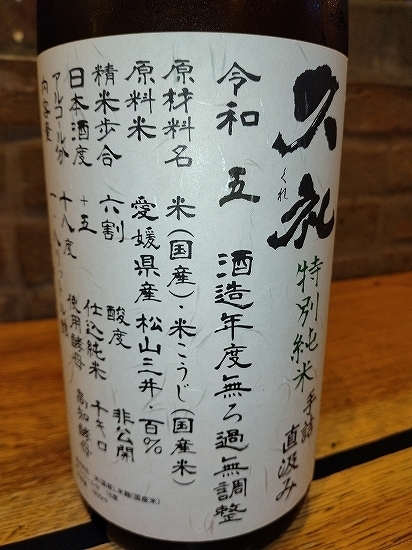 久礼
くれ
特別純米 手詰 直汲み
令和 五 酒造年度無ろ過無調整
原材料名 米(国産)・米こうじ(国産米)
原料米 愛媛県産 松山三井・百%
精米歩合 六割 酸度 非公開
日本酒度 +五 仕込純米 千キロ
アルコール分 十八度 使用酵母 高知酵母
内容量